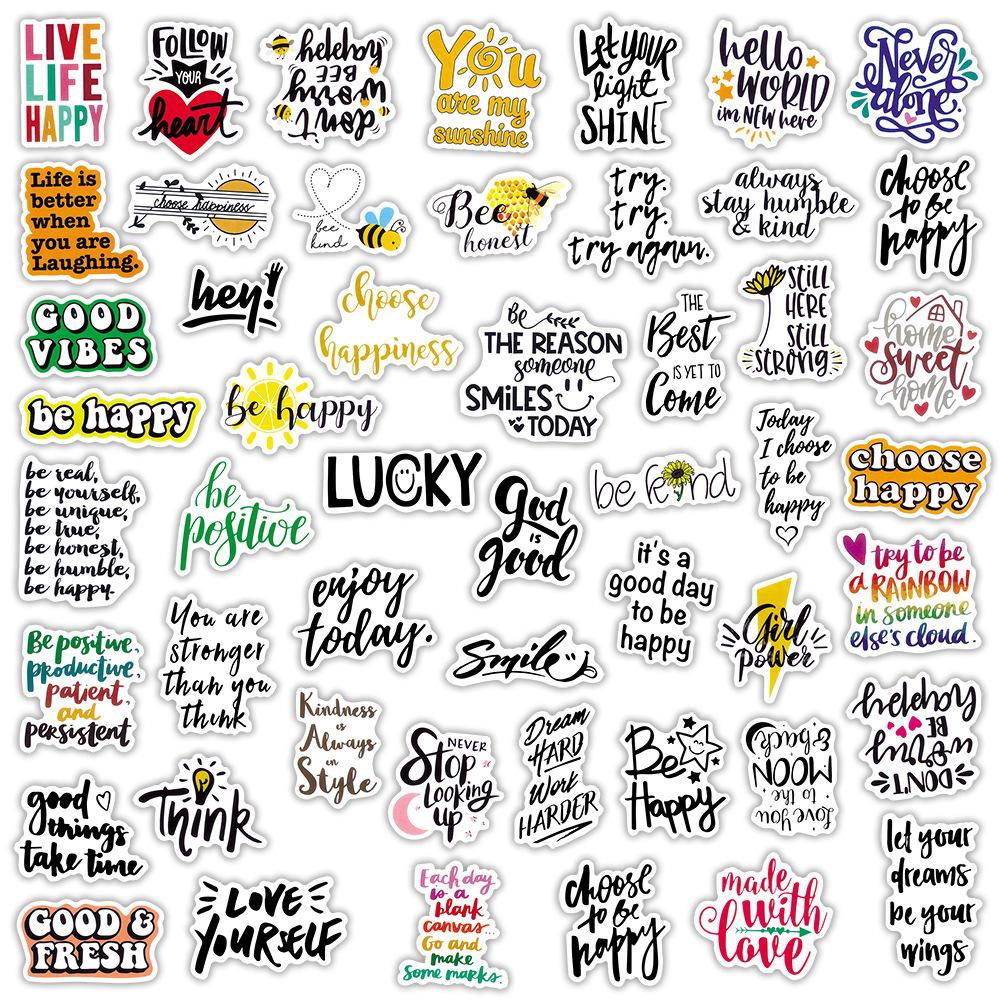 LIVE
LIFE
HAPPY
FOLLOW
YOUR
heart
don't
worry
BEE
You
are my
sunshine
Let YOUR
light
SHINE
hello
WORLD
im NEW here
Never
alone.
Life is
better
when
you are
Laughing.
choose happiness
bee
kind
Bee
honest
try.
try.
try again.
always
stay humble
& kind
choose
to be
happy
GOOD
VIBES
hey!
choose
happiness
Be
THE REASON
someone
SMiLES
TODAY
THE
Best
IS YET TO
Come
STILL
HERE
STILL
STRONG
home
Sweet
home
be happy
be happy
be real,
be yourself,
be unique,
be true,
be honest,
be humble,
be happy.
be
positive
LUCKY
God
IS
good
be kind
Today
I choose
to be
happy
choose
happy
enjoy
today.
it's a
good day
to be
happy
Girl
power
try to be
a RAINBOW
in someone
else's cloud.
Be positive,
productive,
patient,
and
persistent
You are
stronger
than you
think
Smile
Kindness
is
Always
in
Style
NEVER
Stop
Looking
up
Dream
HARD
Work
HARDER
Be
Happy
Love you
to the
MOON
& back
DON'T
WORRY
BE
good
things
take time
Think
let your
dreams
be your
wings
GOOD &
FRESH
LOVE
YOURSELF
Each day
is a
blank
canvas...
Go and
make
some marks.
choose
to be
happy
made
with
love